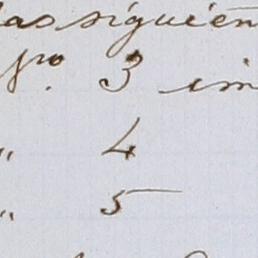 las siguien
No. 3 im
" 4
" 5